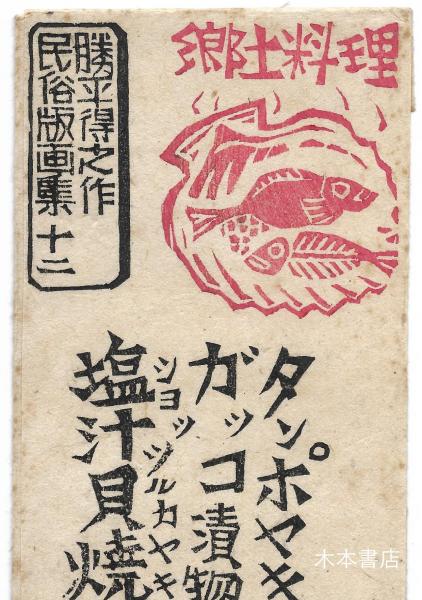 郷土料理
勝平得之作
民俗版画集 十二
タンポヤキ
ガッコ漬物
ショッツルカヤキ
塩汁貝焼
木本書店